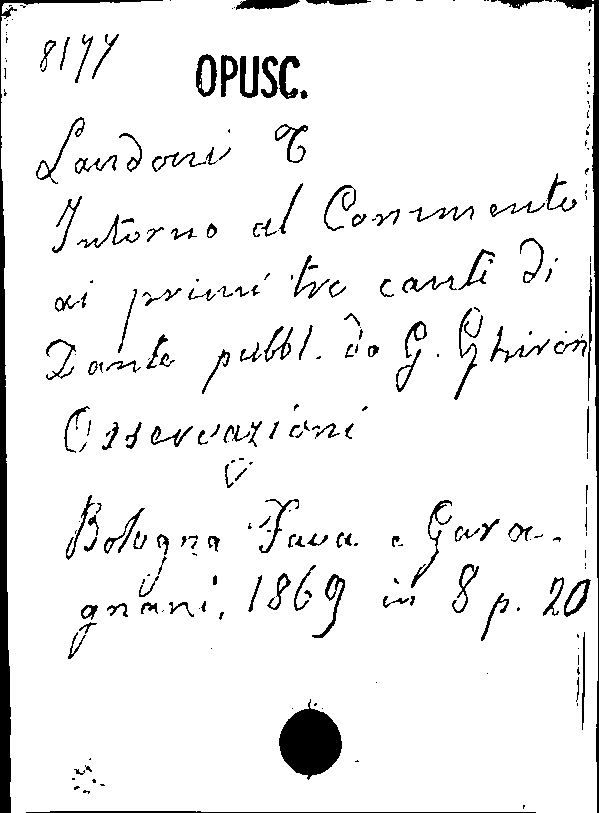 8177
OPUSC.
Landoni T
Intorno al Commento
ai primi tre canti di
Dante pubbl. da G. Ghiron
Osservazioni
Bologna Fava e Gara-
gnani, 1869 in 8 p. 20